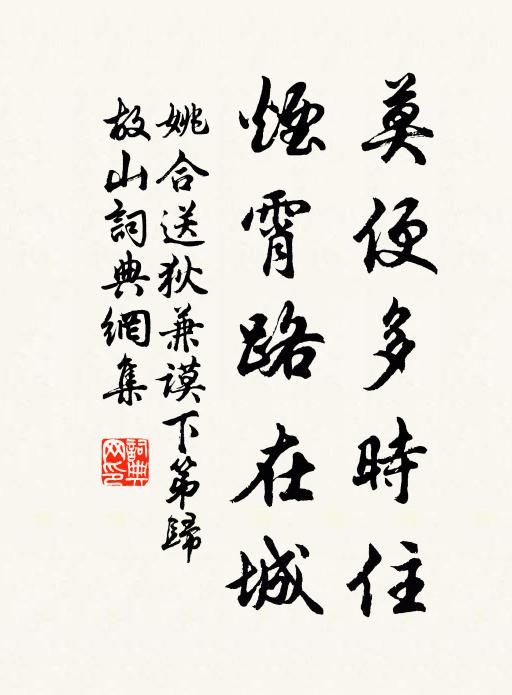 莫便多時住
煙霄路在城
姚合送狄兼謨下第歸
故山詞典網集
詞典
网印